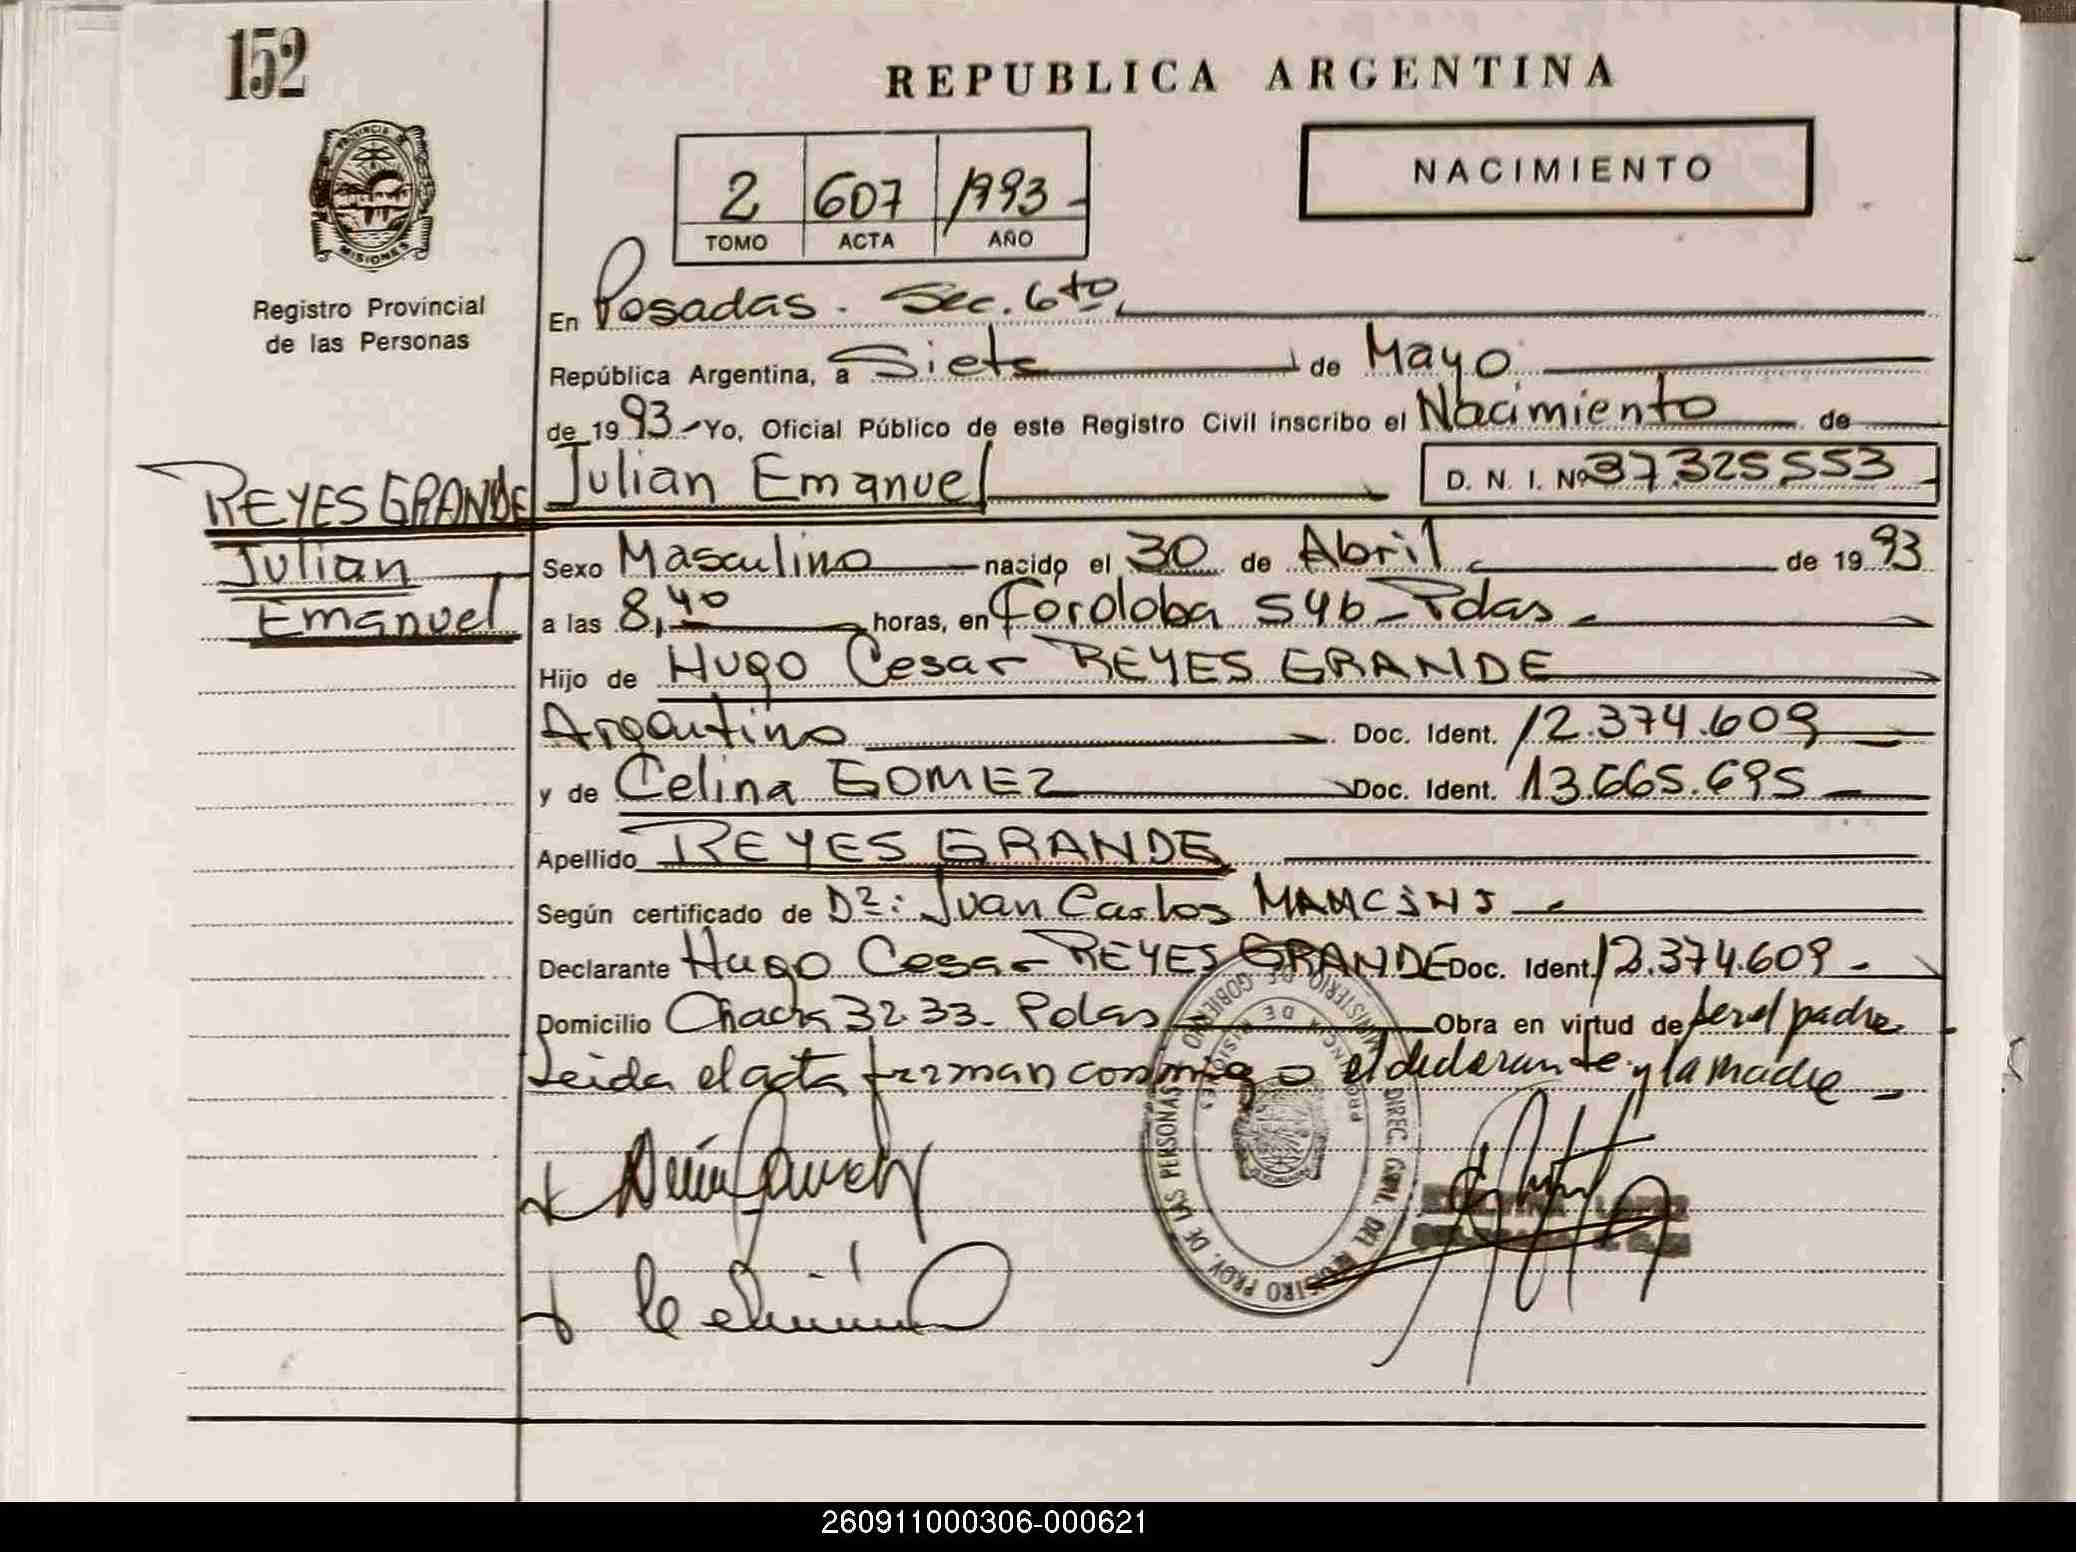 152
REPUBLICA ARGENTINA
PROVINCIA DE
MISIONES
Registro Provincial
de las Personas
2 607 1993-
TOMO ACTA AÑO
NACIMIENTO
En Posadas - Sec. 6to
República Argentina, a Siete de Mayo
de 1993 - Yo, Oficial Público de este Registro Civil inscribo el Nacimiento de
REYES GRANDE
Julian
Emanuel
Julian Emanuel D. N. I. Nº 37.325.553
Sexo Masculino nacido el 30 de Abril de 1993
a las 8,40 horas, en Cordoba 546 - Pdas
Hijo de Hugo Cesar REYES GRANDE
Argentino Doc. Ident. 12.374.609
y de Celina GOMEZ Doc. Ident. 13.665.695
Apellido REYES GRANDE
Según certificado de Dr: Juan Carlos MANCINI
Declarante Hugo Cesar REYES GRANDE Doc. Ident. 12.374.609-
Domicilio Chacra 32.33- Pdas Obra en virtud de ser el padre
Leida el acta firman conmigo el declarante y la madre
MINISTERIO DE GOBIERNO
PROVINCIA DE MISIONES
DIREC. GRAL. DEL REGISTRO PROV. DE LAS PERSONAS
260911000306-000621